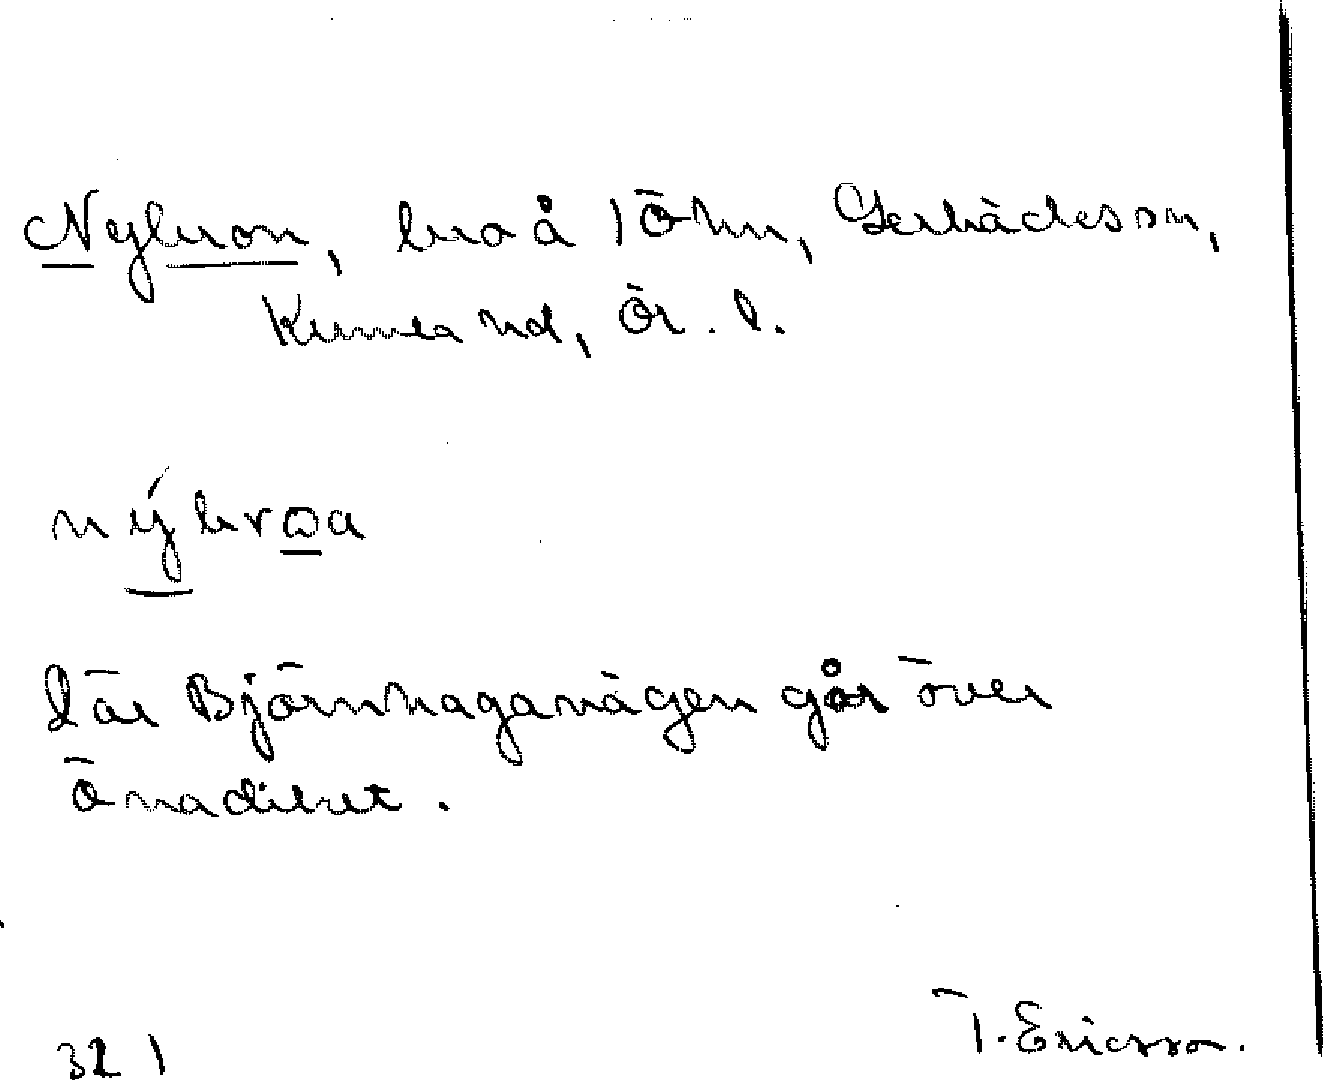 Nybron, bro å Tåhn, Gerbäcks sn,
Kumla hd, Ör. l.
nýbroa
Där Björnhagavägen går över
Önadiket.
T. Ericsson.
321